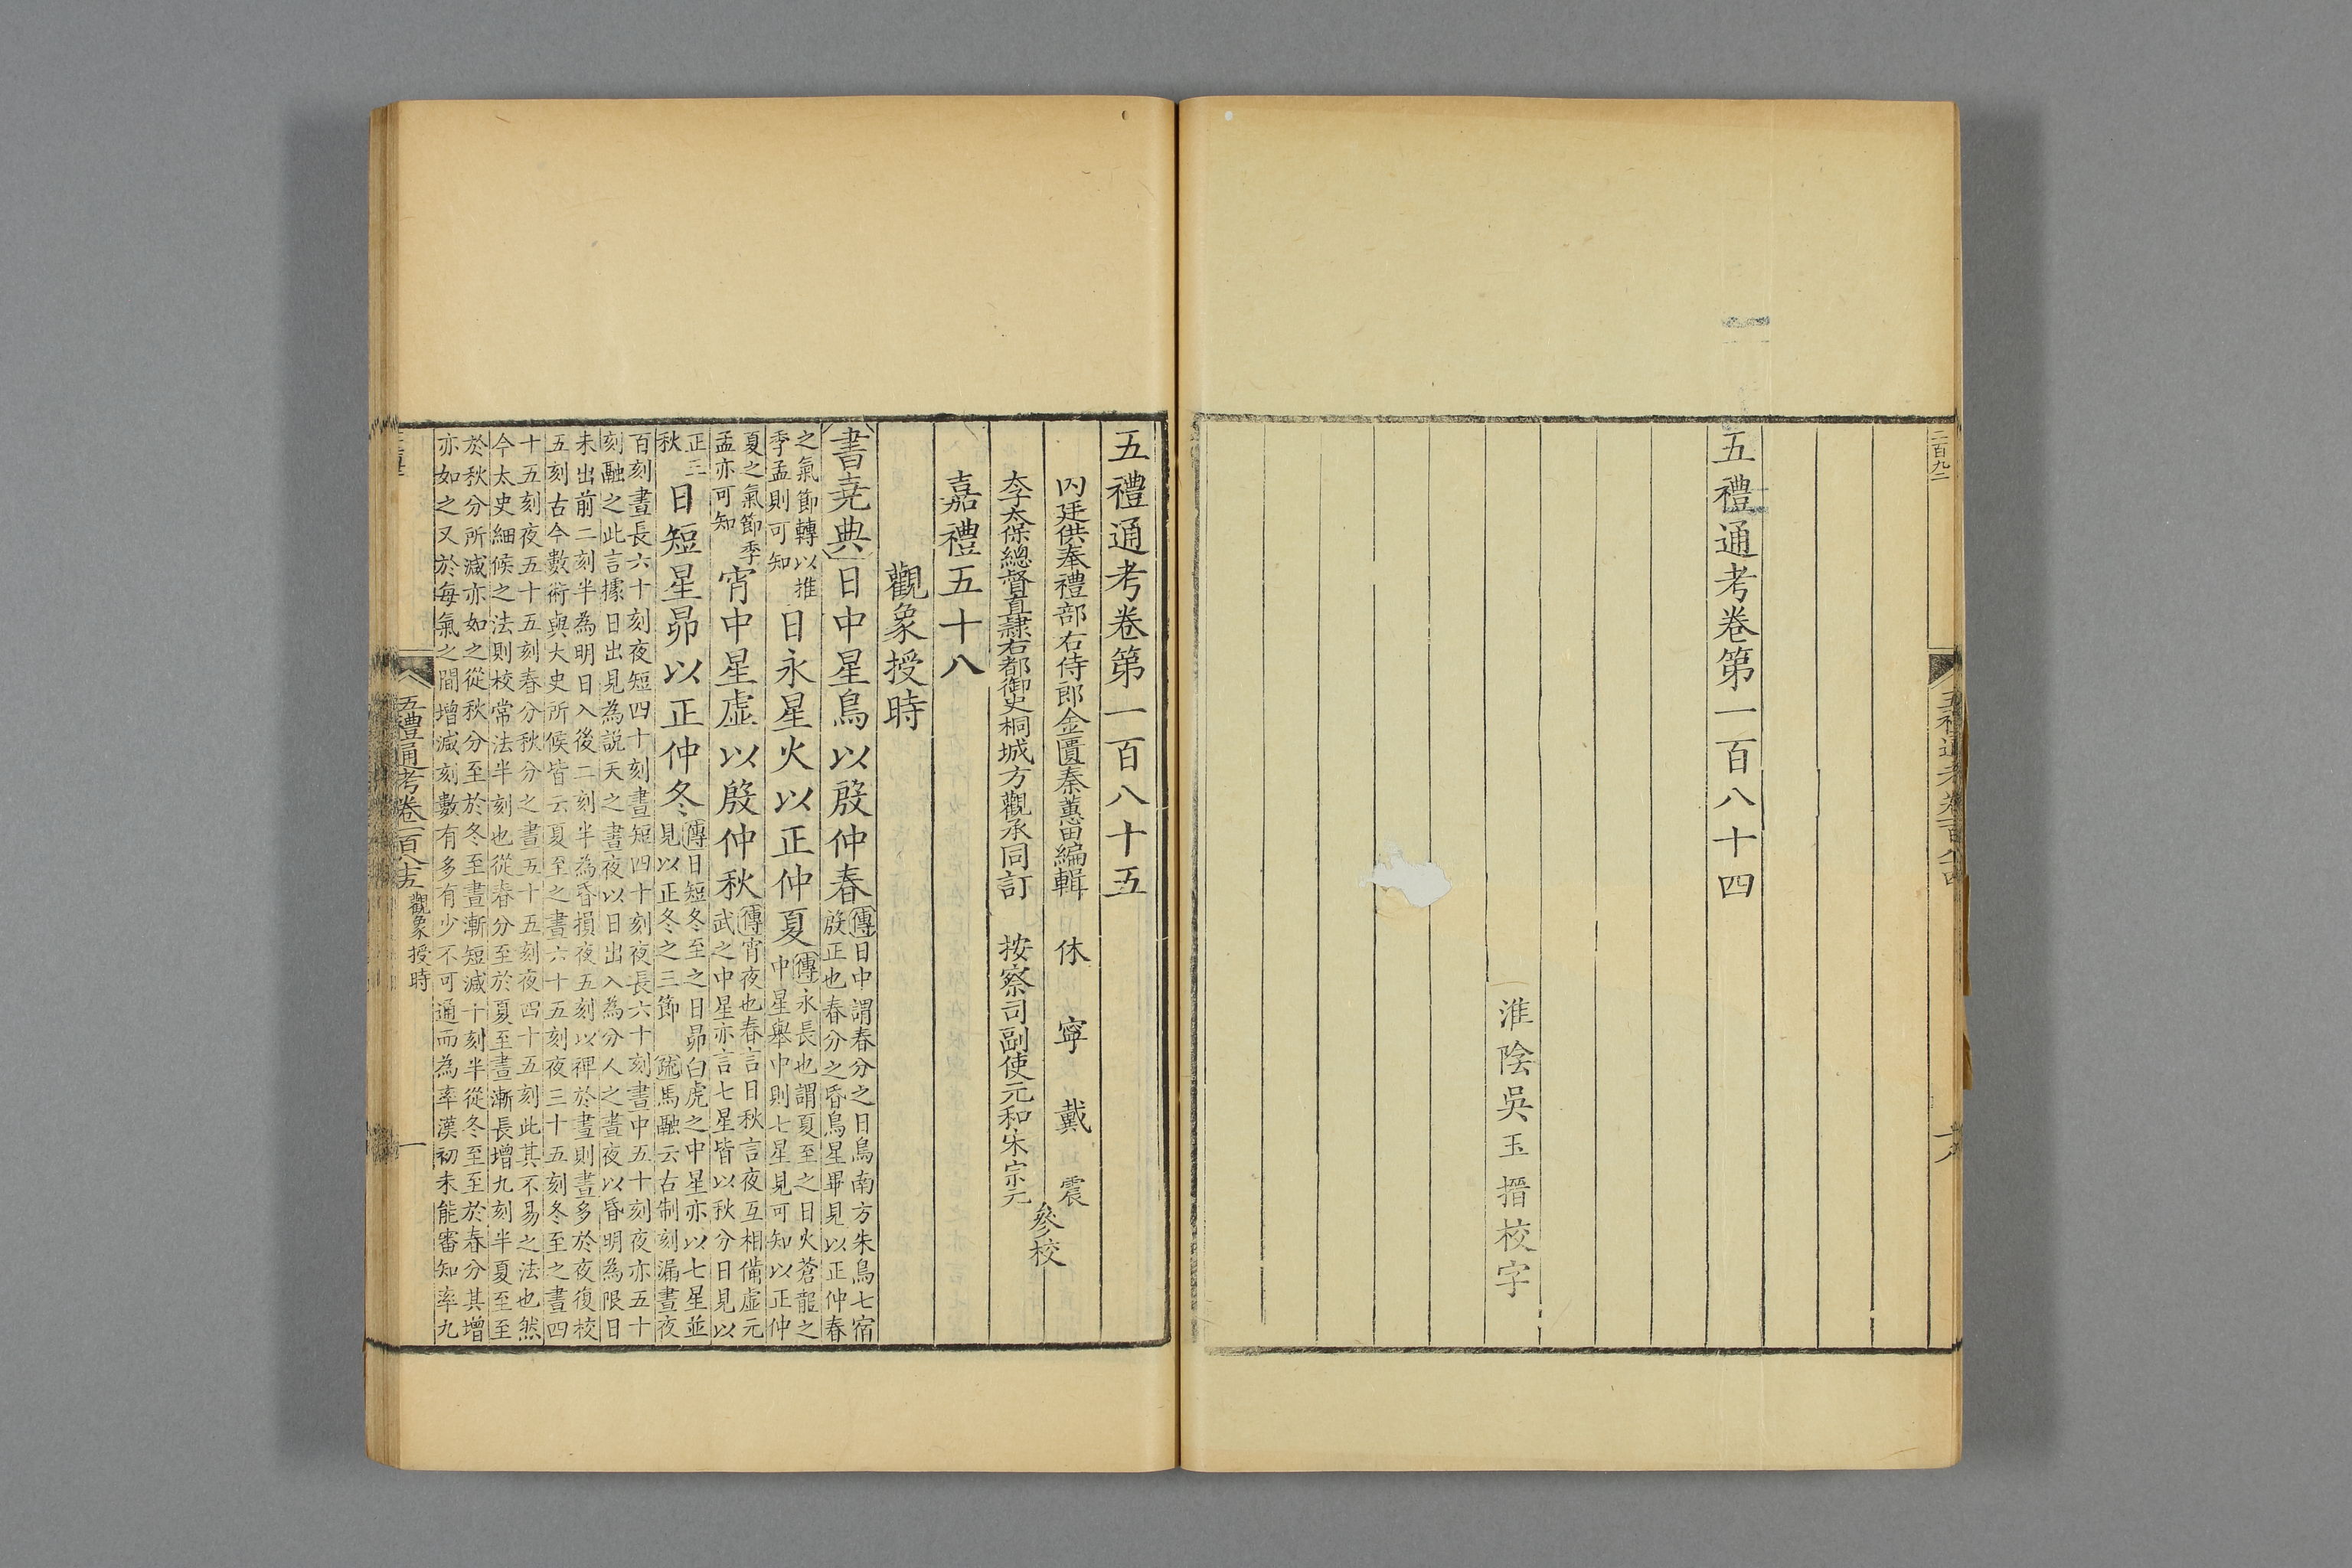 二百九二
五禮通考卷第一百八十四
淮陰吳玉搢校字
五禮通考卷第一百八十五
內廷供奉禮部右侍郎金匱秦蕙田編輯 休寧戴震
太子太保總督直隸右都御史桐城方觀承同訂 按察司副使元和宋宗元
參校
嘉禮五十八
觀象授時
書堯典日中星鳥以殷仲春
傳日中謂春分之日鳥南方朱鳥七宿
殷正也春分之昏鳥星畢見以正仲春
之氣節轉以推
季孟則可知
日永星火以正仲夏
傳永長也謂夏至之日火蒼龍之
中星舉中則七星見可知以正仲
夏之氣節季
孟亦可知
宵中星虛以殷仲秋
傳宵夜也春言日秋言夜互相備虛元
武之中星亦言七星皆以秋分日見以
正三
秋
日短星昴以正仲冬
傳日短冬至之日昴白虎之中星亦以七星並
見以正冬之三節 疏馬融云古制刻漏晝夜
百刻晝長六十刻夜短四十刻晝短四十刻夜長六十刻晝中五十刻夜亦五十
刻融之此言據日出見為說天之晝夜以日出入為分人之晝夜以昏明為限日
未出前二刻半為明日入後二刻半為昏損夜五刻以裨於晝則晝多於夜復校
五刻古今數術與大史所候皆云夏至之晝六十五刻夜三十五刻冬至之晝四
十五刻夜五十五刻春分秋分之晝五十五刻夜四十五刻此其不易之法也然
今太史細候之法則校常法半刻也從春分至於夏至晝漸長增九刻半夏至至
於秋分所減亦如之從秋分至於冬至晝漸短減十刻半從冬至至於春分其增
亦如之又於每氣之間增減刻數有多有少不可通而為率漢初未能審知率九
五禮通考卷一百八十五 觀象授時
一